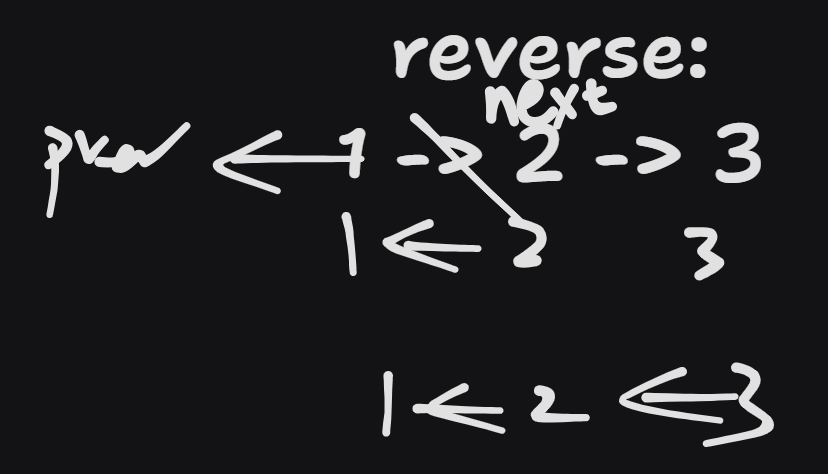 reverse:
next
prev ← 1 -> 2 -> 3
1 ← 2 3
1 ← 2 ← 3